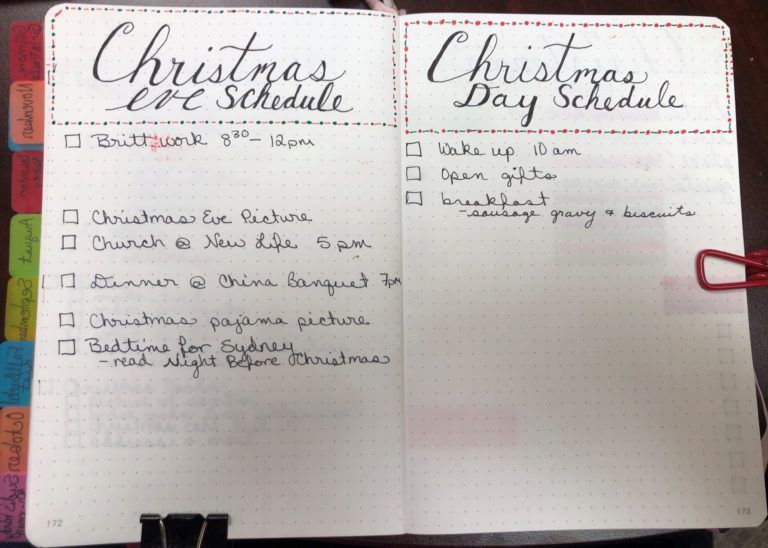 Christmas
eve Schedule
Britt work 8³⁰ - 12pm
Christmas Eve Picture
Church @ New Life 5 pm
Dinner @ China Banquet 7pm
Christmas pajama picture
Bedtime for Sydney
- read Night Before Christmas
172
Christmas
Day Schedule
Wake up 10 am
Open gifts
breakfast
- sausage gravy & biscuits
173
November
August
September
October